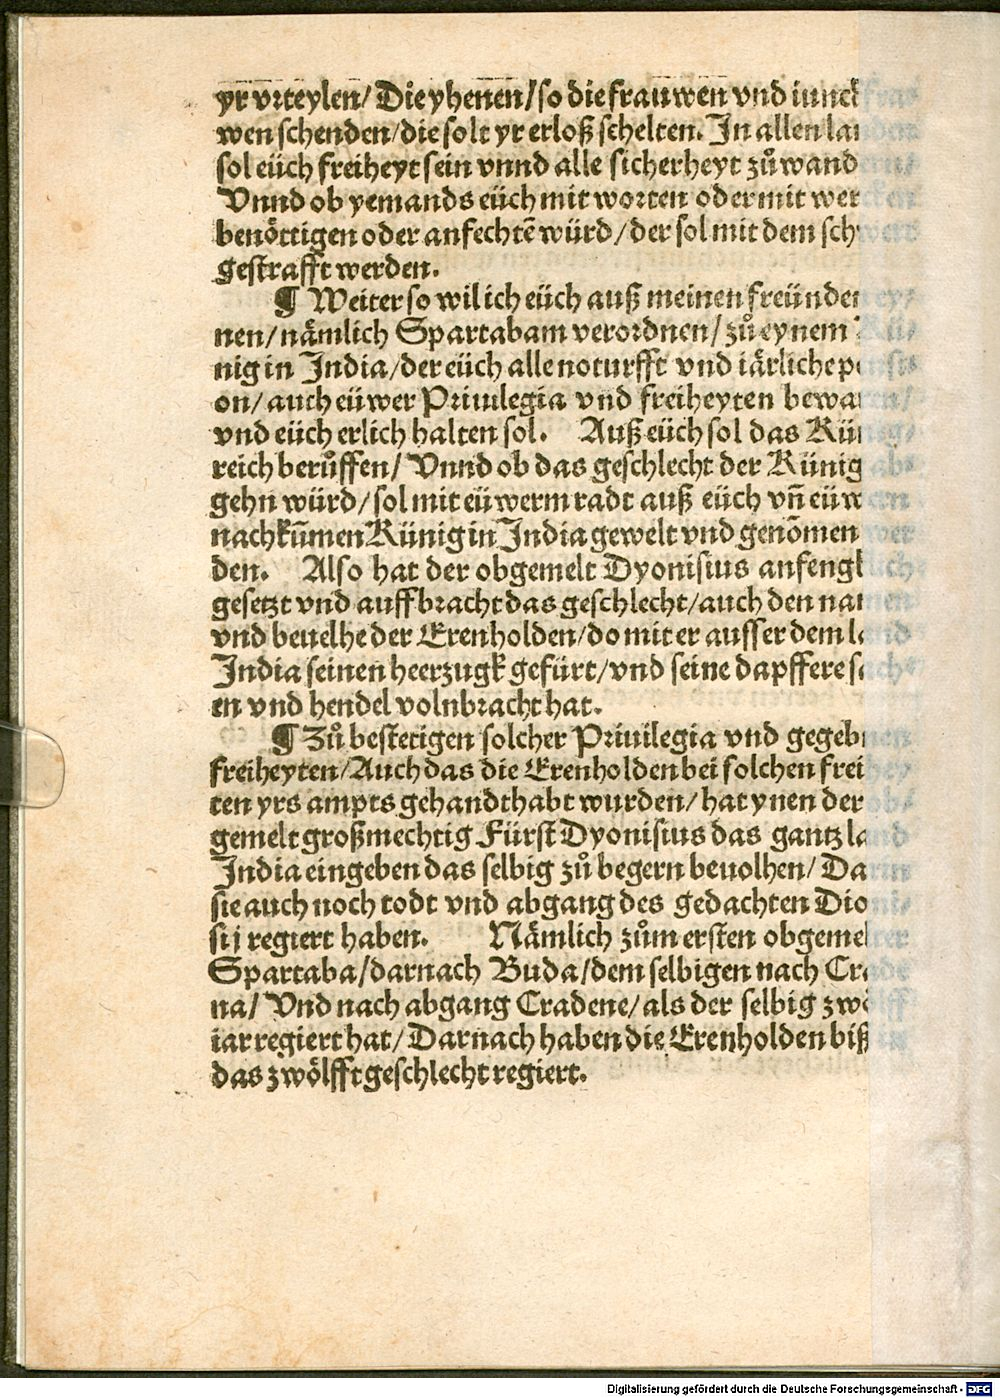 yr vrteylen/ Die yhenen/ so die frauwen vnd iunckfra⸗
wen schenden/ die solt yr erloß schelten. In allen landen
sol eüch freiheyt sein vnnd alle sicherheyt zů wandern/
Vnnd ob yemands eüch mit worten oder mit wercken
benöttigen oder anfechtē würd/ der sol mit dem schwert
gestrafft werden.
¶ Weiter so wil ich eüch auß meinen freünden ey⸗
nen/ nämlich Spartabam verordnen/ zů eynem Kü⸗
nig in India/ der eüch alle noturfft vnd iärliche pensi⸗
on/ auch eüwer Priuilegia vnd freiheyten bewaren/
vnd eüch erlich halten sol. Auß eüch sol das Künig⸗
reich berůffen/ Vnnd ob das geschlecht der Künig ab⸗
gehn würd/ sol mit eüwerm radt auß eüch vn̄ eüwern
nachkūmen Künig in India gewelt vnd genōmen wer
den. Also hat der obgemelt Dyonisius anfenglich
gesetzt vnd auffbracht das geschlecht/ auch den namen
vnd beuelhe der Erenholden/ do mit er ausser dem land
India seinen heerzugk gefürt/ vnd seine dapffere sach⸗
en vnd hendel volnbracht hat.
¶ Zů bestetigen solcher Priuilegia vnd gegebnen
freiheyten/ Auch das die Erenholden bei solchen freihey
ten yrs ampts gehandthabt wurden/ hat ynen der ob⸗
gemelt großmechtig Fürst Dyonisius das gantz land
India eingeben das selbig zů begern beuolhen/ Darin
sie auch noch todt vnd abgang des gedachten Dioni⸗
sij regiert haben. Nämlich zům ersten obgemelter
Spartaba/ darnach Buda/ dem selbigen nach Crade
na/ Vnd nach abgang Cradene/ als der selbig zwölff
iar regiert hat/ Darnach haben die Erenholden biß in
das zwölfft geschlecht regiert.
Digitalisierung gefördert durch die Deutsche Forschungsgemeinschaft - DFG